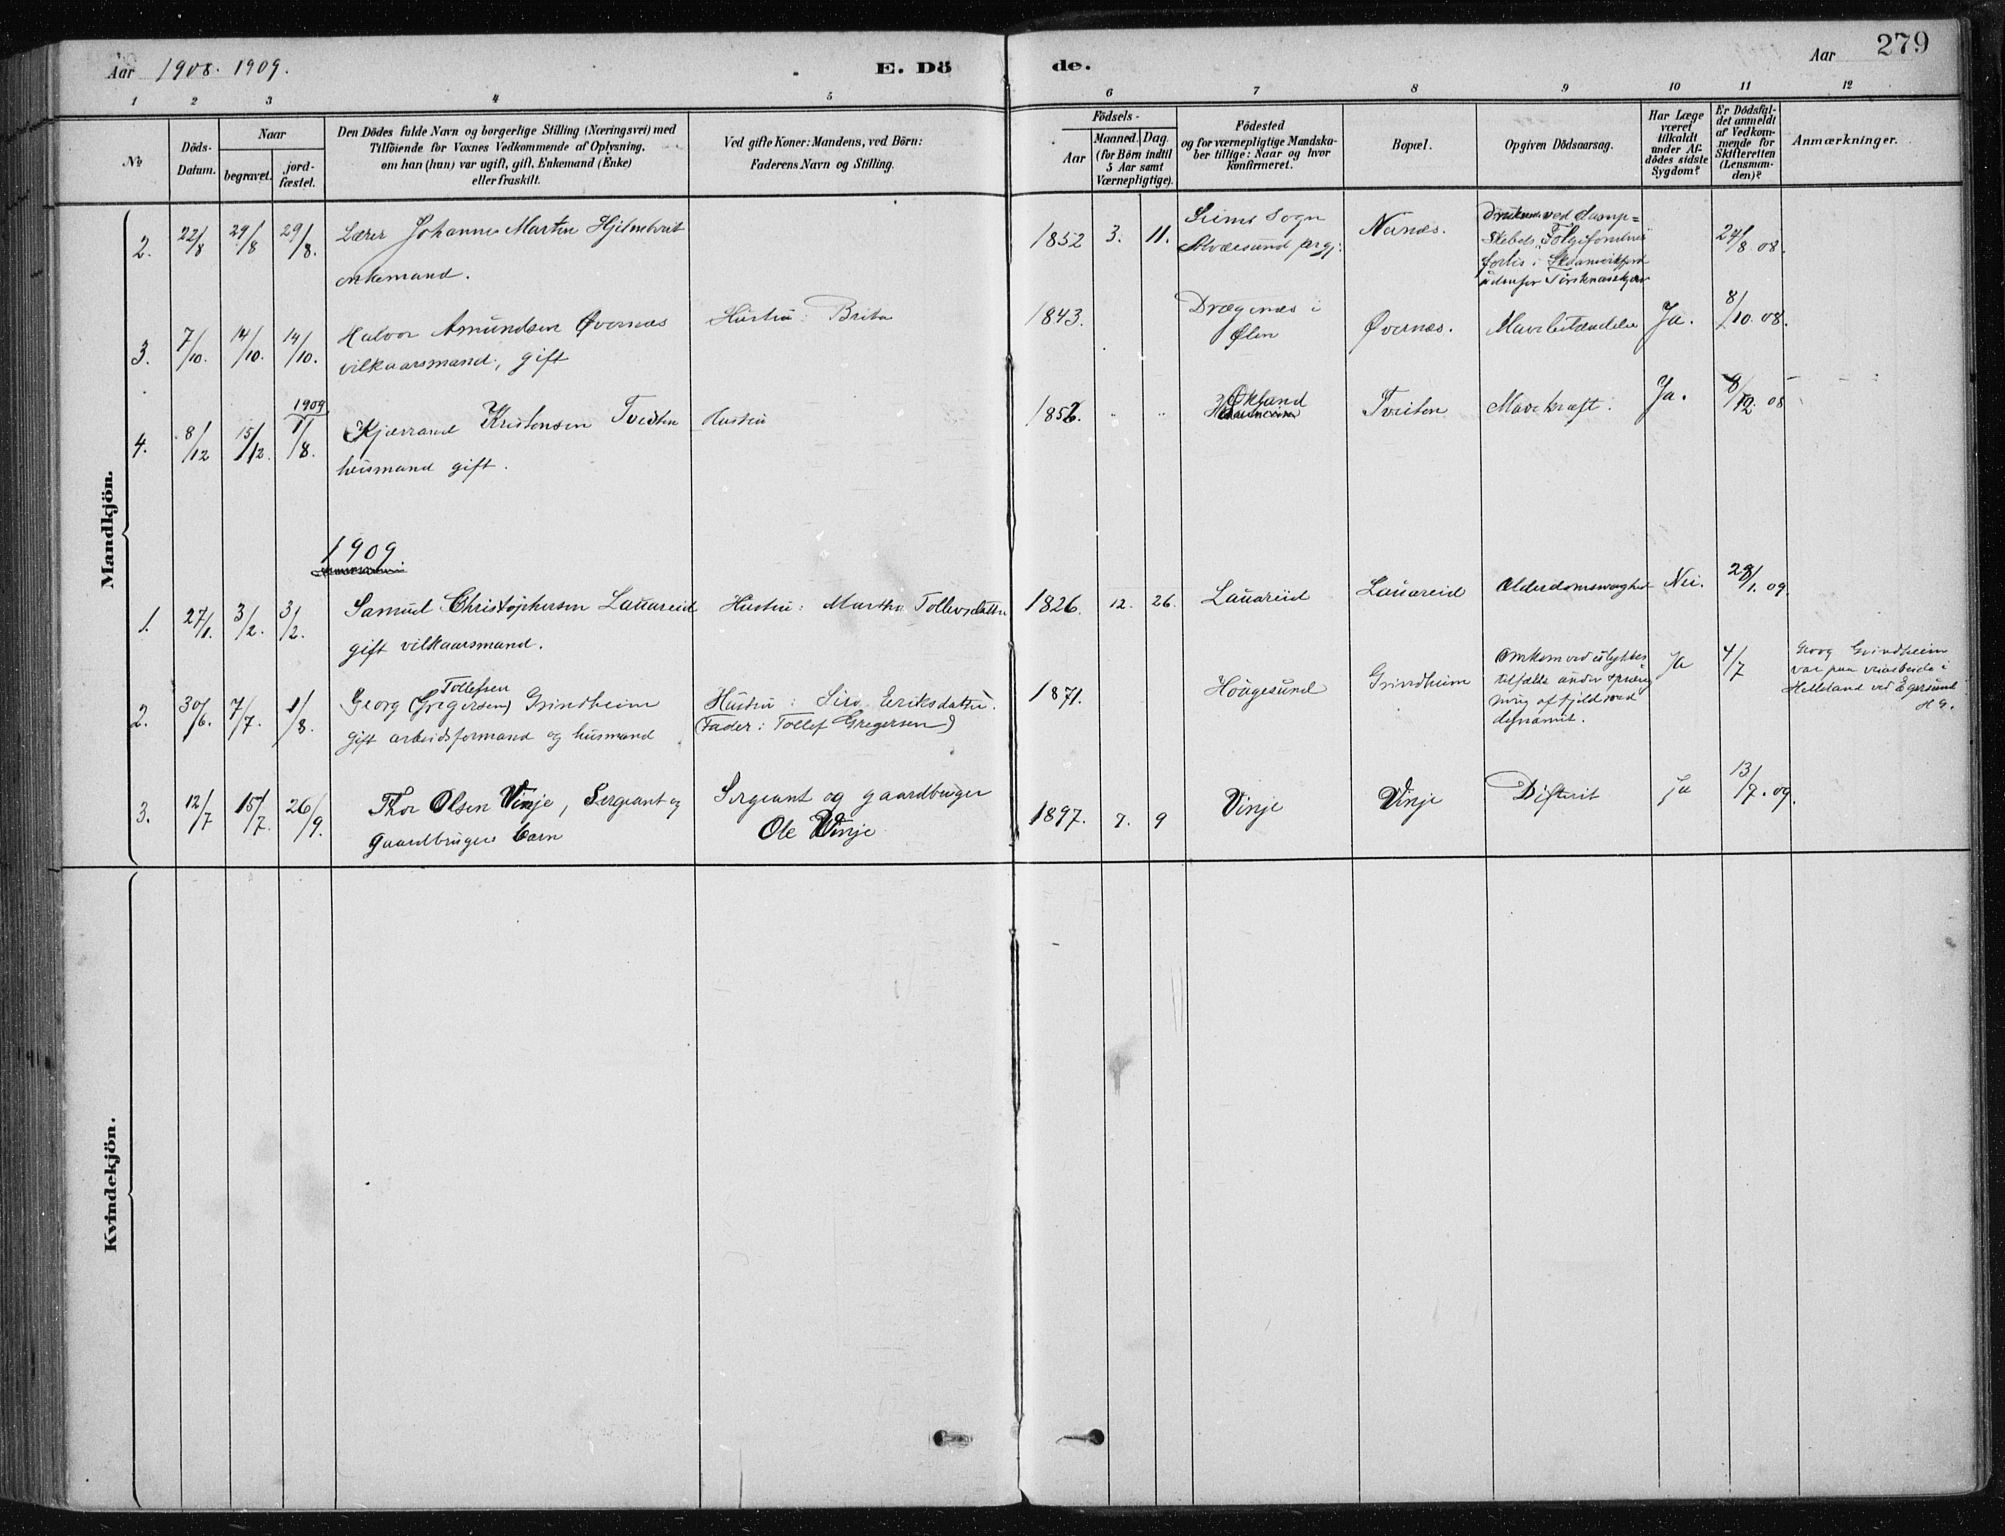 Aar 1908. 1909.
E. Dö
de.
Aar
279
1 2 3 4 5 6 7 8 9 10 11 12
No
Döds-
Datum.
Naar
begravet.
jord-
fæstet.
Den Dödes fulde Navn og borgerlige Stilling (Næringsvei) med
Tilföiende for Voxnes Vedkommende af Oplysning,
om han (hun) var ugift, gift, Enkemand (Enke)
eller fraskilt.
Ved gifte Koner: Mandens, ved Börn:
Faderens Navn og Stilling.
Födsels-
Aar
Maaned. Dag.
(for Börn indtil
5 Aar samt
Værnepligtige).
Födested
og for værnepligtige Mandska-
ber tillige: Naar og hvor
Konfirmeret.
Bopæl.
Opgiven Dödsaarsag.
Har Læge
været
tilkaldt
under Af-
dödes sidste
Sygdom?
Er Dödsfal-
det anmeldt
af Vedkom-
mende for
Skifteretten
(Lensman-
den)?
Anmærkninger.
Mandkjön.
2. 22/8 29/8 29/8. Lærer Johannes Martin
enkemand.
1852 3. 11. Seims Sogn
Nernes.
ved Damp=
forlis i
24/8 08.
3. 7/10. 14/10. 14/10. Halvor Amundsen Øvernæs
vilkaarsmand, gift
Hustru: Brita
1843. Drægenæs i
Ølen
Øvernæs. Mavebetændelse Ja. 8/10. 08.
4. 8/12 15/12. 1909 1/8. Kjærrand Kristensen Tveiten
husmand gift.
Hustru
1852. " " Økland
Tveiten Mavekræft. Ja. 8/12 08
1909.
1. 27/1. 3/2. 3/2. Samuel Christophersen Lauareid
gift vilkaarsmand.
Hustru: Martha Tollevsdatter
1826. 12. 26. Lauareid Lauareid Alderdomssvaghed Nei. 28/1. 09.
2. 30/6. 7/7. 1/8. Tollefsen
Georg (Gregersen) Grindheim
gift arbeidsformand og husmand
Hustru: Siro Eriksdatter.
(Fader: Tollef Gregersen)
1871. Hougesund Grindheim omkom ved ulykkes
tilfælde under spræng
ning af fjeld med
dynamit.
Ja 4/7 Georg Grindheim
var paa veiarbeide i
Helleland ved Egersund
H G.
3. 12/7 15/7. 26/9. Thor Olsen Vinje, Sergeant og
gaardbrugers barn
Sergeant og gaardbruger
Ole Vinje
1897. 7. 9 Vinje Vinje Difterit ja 13/7. 09.
Kvindekjön.